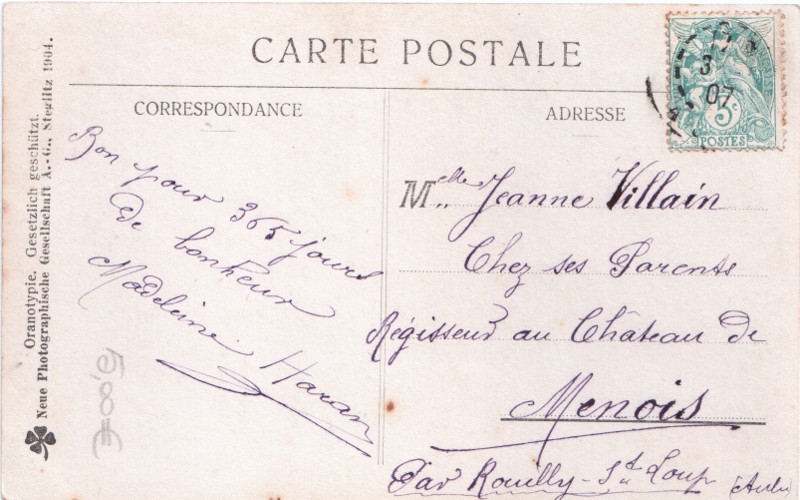 CARTE POSTALE
CORRESPONDANCE
ADRESSE
Bon pour 365 jours
de bonheur
Madeleine Haran
Melle Jeanne Villain
Chez ses Parents
Régisseur au Château de
Menois
Par Rouilly-St Loup (Aube)
3
07
5c
POSTES
Oranotypie. Gesetzlich geschützt.
Neue Photographische Gesellschaft A.-G., Steglitz 1904.